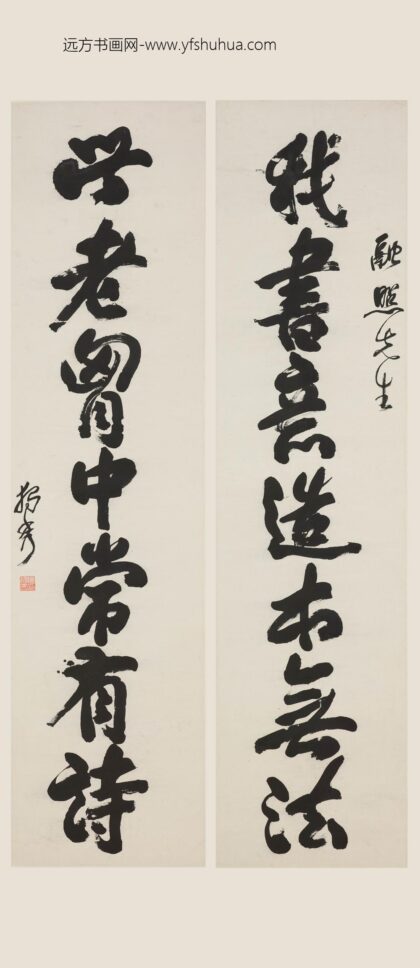 远方书画网-www.yfshuhua.com
照先生
我書意造本無法
此老胷中常有詩
獨秀